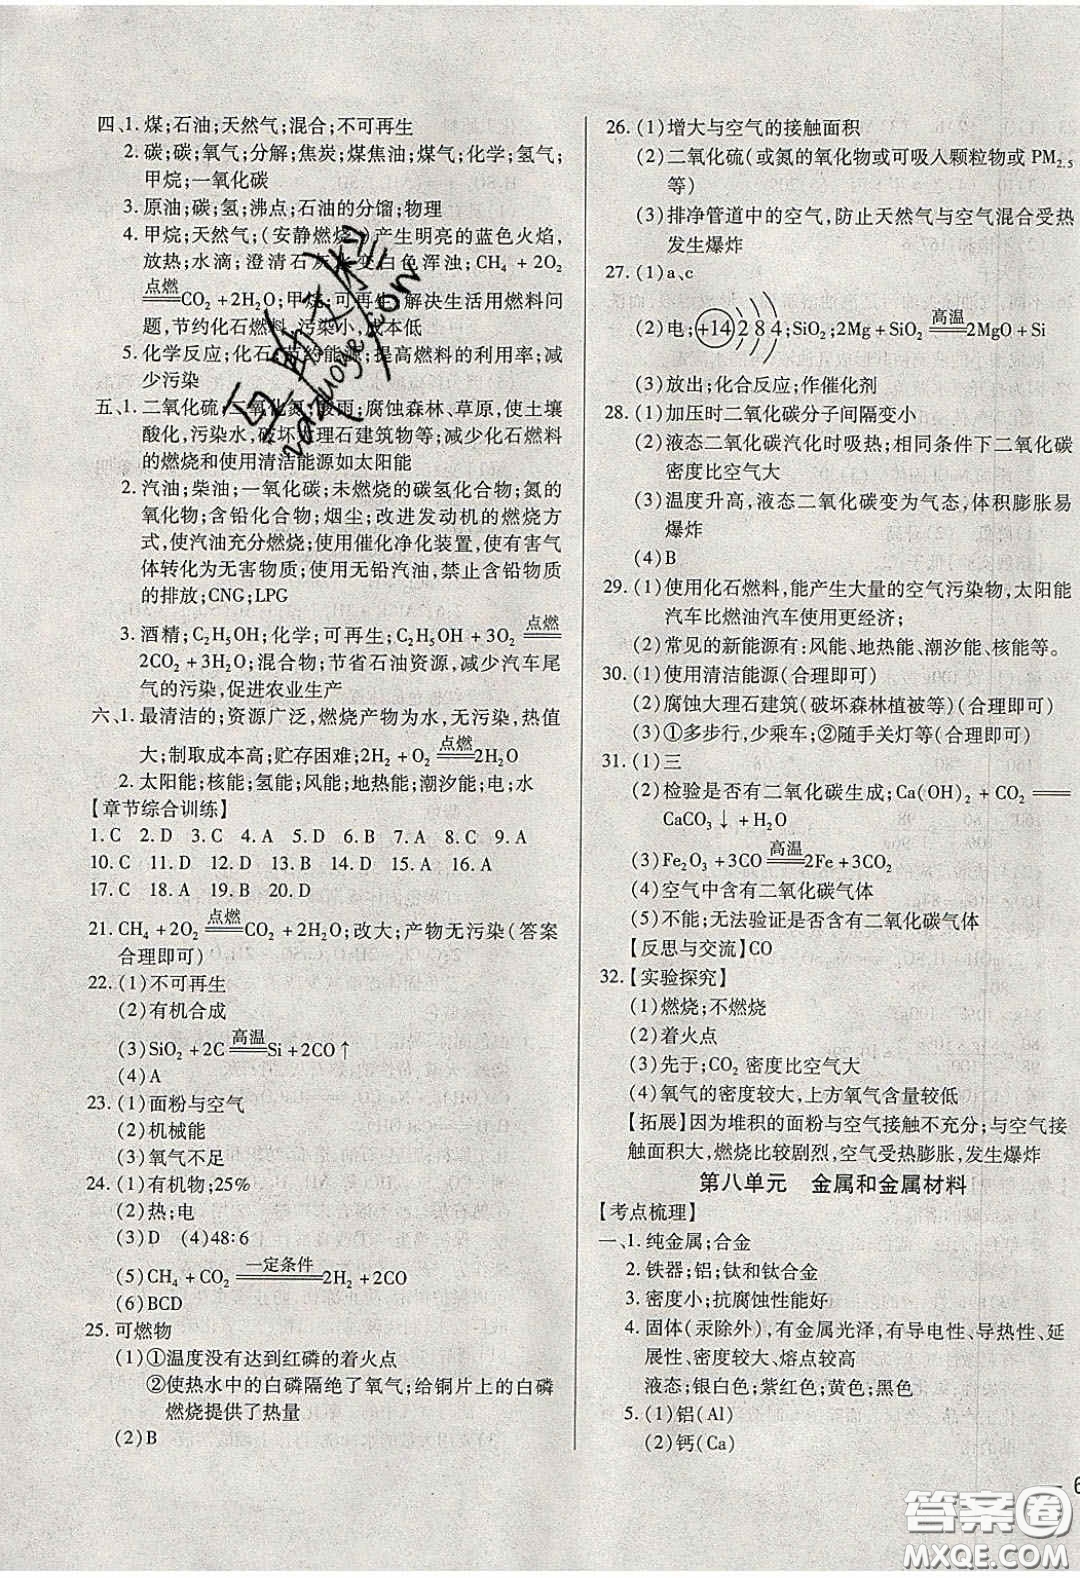 四、1. 煤;石油;天然气;混合;不可再生
2. 碳;碳;氧气;分解;焦炭;煤焦油;煤气;化学;氢气;
甲烷;一氧化碳
3. 原油;碳;氢;沸点;石油的分馏;物理
4. 甲烷;天然气;(安静燃烧,)产生明亮的蓝色火焰,
放热;水滴;澄清石灰水变白色浑浊;CH₄+2O₂
点燃
══CO₂+2H₂O;甲烷;可再生;解决生活用燃料问
题,节约化石燃料,污染小,成本低
5. 化学反应;化石;节约能源;提高燃料的利用率;减
少污染
五、1. 二氧化硫;二氧化氮;酸雨;腐蚀森林、草原,使土壤
酸化,污染水,破坏大理石建筑物等;减少化石燃料
的燃烧和使用清洁能源如太阳能
2. 汽油;柴油;一氧化碳;未燃烧的碳氢化合物;氮的
氧化物;含铅化合物;烟尘;改进发动机的燃烧方
式,使汽油充分燃烧;使用催化净化装置,使有害气
体转化为无害物质;使用无铅汽油,禁止含铅物质
的排放;CNG;LPG
3. 酒精;C₂H₅OH;化学;可再生;C₂H₅OH+3O₂ 点燃══
2CO₂+3H₂O;混合物;节省石油资源,减少汽车尾
气的污染,促进农业生产
六、1. 最清洁的;资源广泛,燃烧产物为水,无污染,热值
大;制取成本高;贮存困难;2H₂+O₂ 点燃══2H₂O
2. 太阳能;核能;氢能;风能;地热能;潮汐能;电;水
【章节综合训练】
1. C 2. D 3. C 4. A 5. D 6. A 7. A 8. C 9. A
10. C 11. D 12. D 13. D 14. D 15. A 16. A
17. C 18. A 19. B 20. D
21. CH₄+2O₂ 点燃══CO₂+2H₂O;改大;产物无污染(答案
合理即可)
22. (1)不可再生
(2)有机合成
(3)SiO₂+2C 高温══Si+2CO↑
(4)A
23. (1)面粉与空气
(2)机械能
(3)氧气不足
24. (1)有机物;25%
(2)热;电
(3)D (4)48:6
(5)CH₄+CO₂ 一定条件══2H₂+2CO
(6)BCD
25. 可燃物
(1)①温度没有达到红磷的着火点
②使热水中的白磷隔绝了氧气;给铜片上的白磷
燃烧提供了热量
(2)B
26. (1)增大与空气的接触面积
(2)二氧化硫(或氮的氧化物或可吸入颗粒物或 PM₂.₅
等)
(3)排净管道中的空气,防止天然气与空气混合受热
发生爆炸
27. (1)a、c
(2)电;+14 2 8 4;SiO₂;2Mg+SiO₂ 高温══2MgO+Si
(3)放出;化合反应;作催化剂
28. (1)加压时二氧化碳分子间隔变小
(2)液态二氧化碳汽化时吸热;相同条件下二氧化碳
密度比空气大
(3)温度升高,液态二氧化碳变为气态,体积膨胀易
爆炸
(4)B
29. (1)使用化石燃料,能产生大量的空气污染物,太阳能
汽车比燃油汽车使用更经济;
(2)常见的新能源有:风能、地热能、潮汐能、核能等。
30. (1)使用清洁能源(合理即可)
(2)腐蚀大理石建筑(破坏森林植被等)(合理即可)
(3)①多步行,少乘车;②随手关灯等(合理即可)
31. (1)三
(2)检验是否有二氧化碳生成;Ca(OH)₂+CO₂══
CaCO₃↓+H₂O
(3)Fe₂O₃+3CO 高温══2Fe+3CO₂
(4)空气中含有二氧化碳气体
(5)不能;无法验证是否含有二氧化碳气体
【反思与交流】CO
32. 【实验探究】
(1)燃烧;不燃烧
(2)着火点
(3)先于;CO₂ 密度比空气大
(4)氧气的密度较大,上方氧气含量较低
【拓展】因为堆积的面粉与空气接触不充分;与空气接
触面积大,燃烧比较剧烈,空气受热膨胀,发生爆炸
第八单元 金属和金属材料
【考点梳理】
一、1. 纯金属;合金
2. 铁器;铝;钛和钛合金
3. 密度小;抗腐蚀性能好
4. 固体(汞除外),有金属光泽,有导电性、导热性、延
展性、密度较大、熔点较高
液态;银白色;紫红色;黄色;黑色
5. (1)铝(Al)
(2)钙(Ca)
答案圈
MXQE.COM